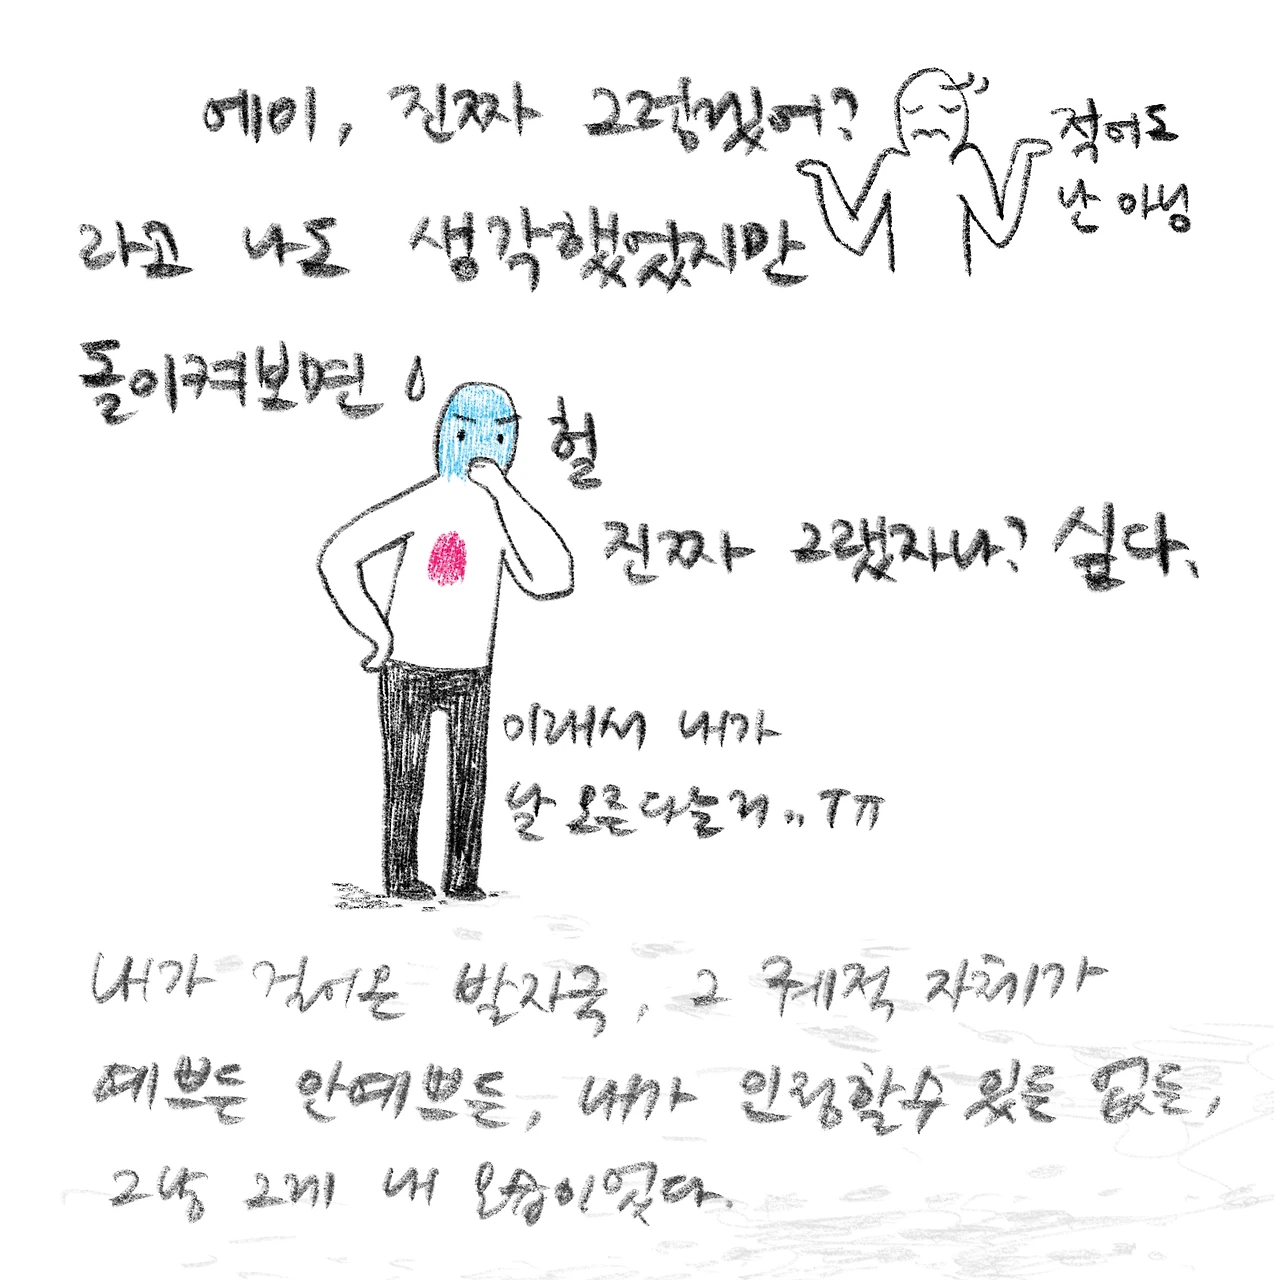 에이, 진짜 그렇겠어?
적어도
난 아닝
라고 나도 생각했었지만
돌이켜보면
헐
진짜 그랬자나? 싶다.
이래서 내가
날 모른다는거,, ㅜㅠ
내가 걸어온 발자국, 그 궤적 자체가
예쁘든 안예쁘든, 내가 인정할수 있든 없든,
그냥 그게 내 모습이었다.